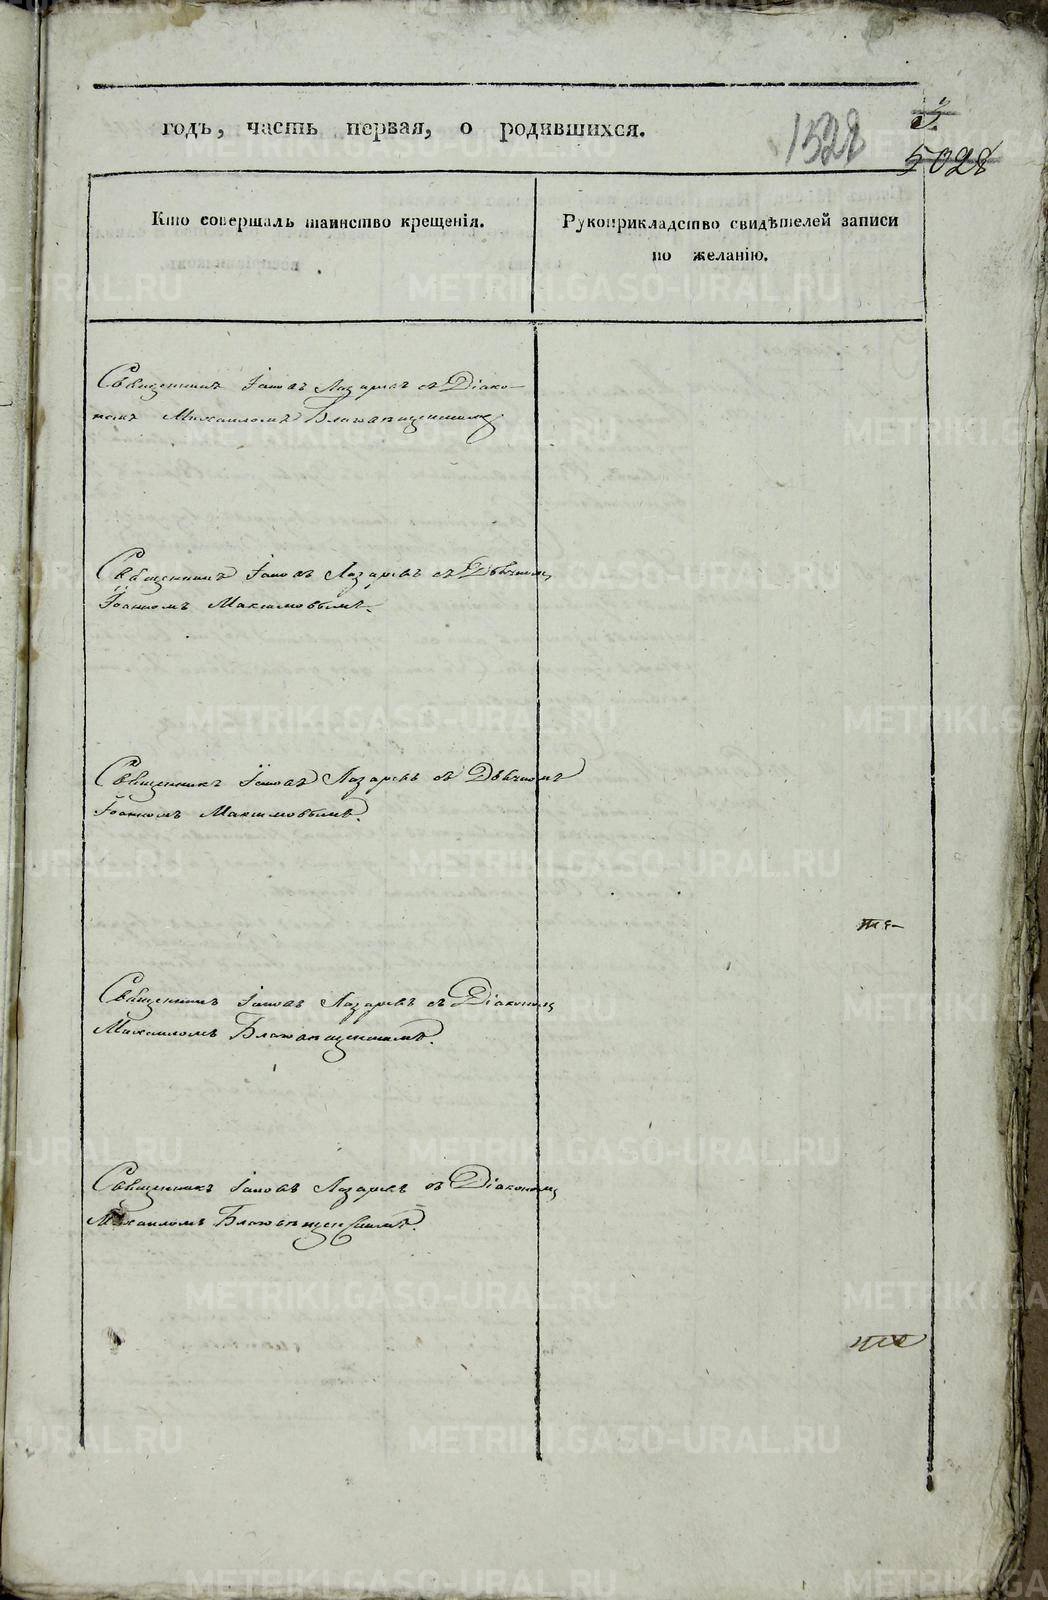 годъ, часть первая, о родившихся.
1528
3.
5028
Кто совершалъ таинство крещенія.
Рукоприкладство свидѣтелей записи
по желанію.
Священникъ Іаковъ Лазаревъ съ Діако-
номъ Михаиломъ Благовѣщенскимъ
Священникъ Іаковъ Лазаревъ съ Дьячкомъ
Іоанномъ Максимовымъ.
Священникъ Іаковъ Лазаревъ съ Дьячкомъ
Іоанномъ Максимовымъ.
Священникъ Іаковъ Лазаревъ съ Діакономъ
Михаиломъ Благовѣщенскимъ.
Священникъ Іаковъ Лазаревъ съ Діакономъ
Михаиломъ Благовѣщенскимъ.
METRIKI.GASO-URAL.RU